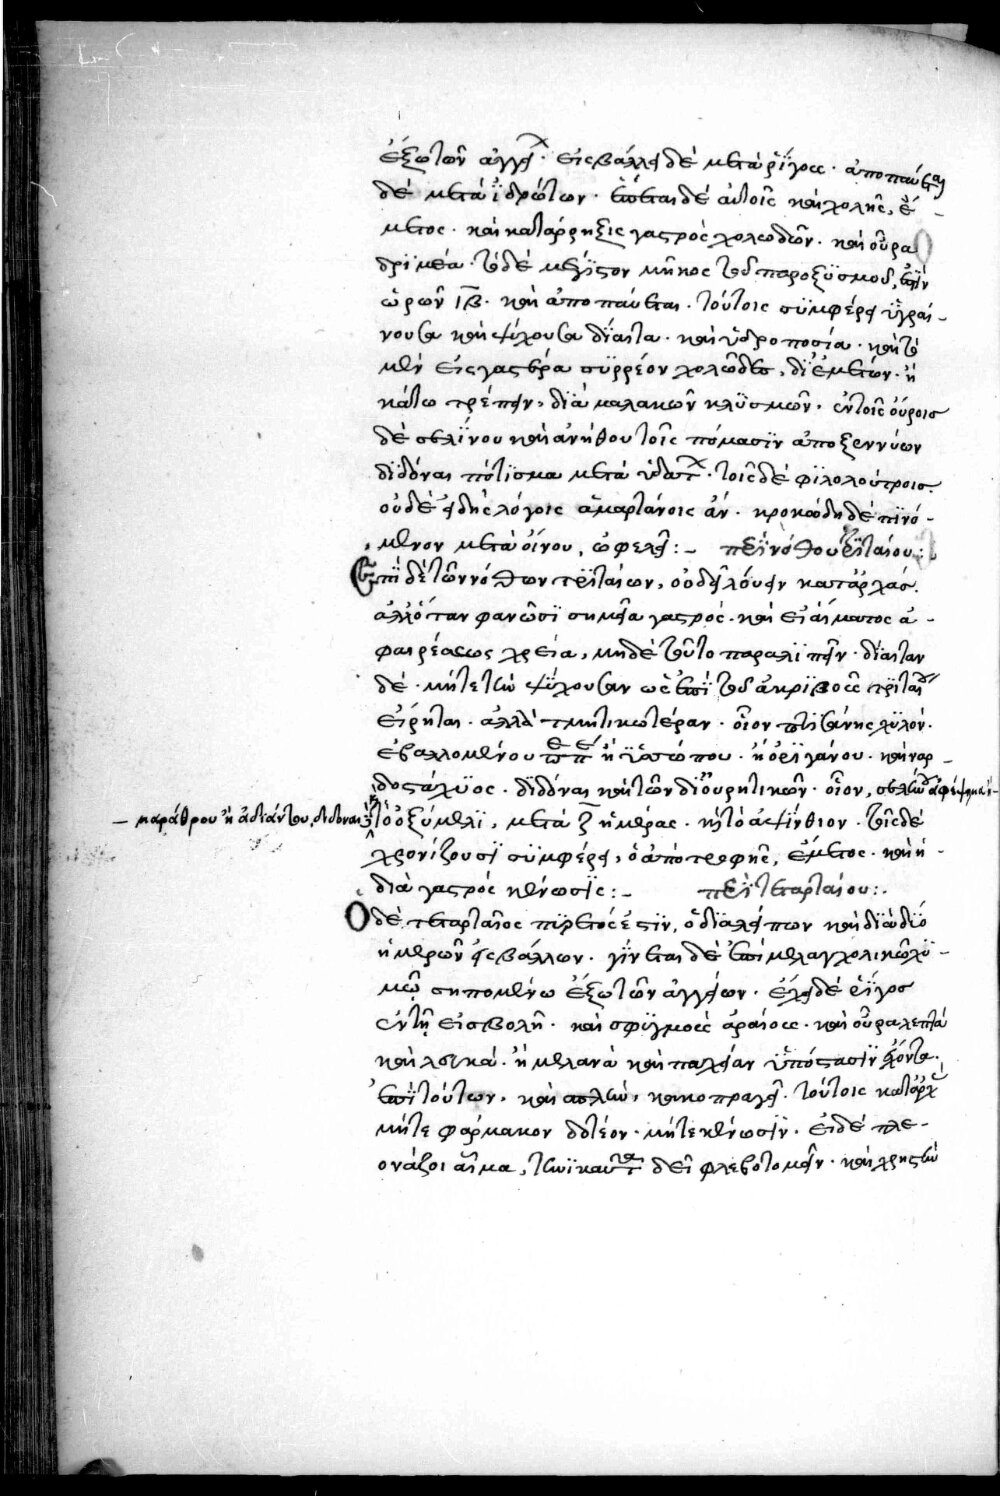 ἐξωτῶν ἀγγεί. εἰσβάλλει δέ μετὰ ῥίγους. ἀποπαύεται
δέ μετὰ ἱδρώτων. ἕπεται δέ αὐτοῖς καὶ χολῆς, ἔ-
μετος. καὶ κατάρρηξις γαστρὸς χολωδῶν. καὶ οὖρα
δριμέα. τὸ δέ μέγιστον μῆκος τοῦ παροξυσμοῦ, ἐστὶν
ὡρῶν ιβ. καὶ ἀποπαύεται. τούτοις συμφέρει ὑγραί-
νουσα καὶ ψύχουσα δίαιτα. καὶ ὑδροποσία. καὶ τὸ
μὲν εἰς γαστέρα συρρέον χολῶδες, δι ἐμέτων. ἢ
κάτω τρέπειν, διὰ μαλακῶν κλυσμῶν. ἐν τοῖς οὔροις
δὲ σελίνου καὶ ἀνήθου τοῖς πόμασιν ἀποζεννύων
διδόναι πότισμα μετὰ ὕδατ. τοῖς δέ φιλολούτροις
οὐδέ λόγοις ἁμαρτάνοις ἄν. κροκώδη δέ πινό-
μενον μετὰ οἴνου, ὠφελεῖ:- περὶ νόθου τριταίου:
Ἐπὶ δὲ τῶν νόθων τριταίων, οὐ δεῖ λούειν κατ ἀρχάς.
ἀλλ ὅταν φανῶσι σημεῖα γαστρός. καὶ εἰ αἵματος ἀ-
φαιρέσεως χρεία, μηδὲ τοῦτο παραλιπεῖν. δίαιταν
δέ. μήτε τὴν ψύχουσαν ὡς ἐπὶ τοῦ ἀκριβοῦς τριταί
εἴρηται. ἀλλὰ τμητικωτέραν. οἷον πτισάνης χυλόν.
ἐμβαλλομένου πεπ ἢ ὑσσώπου. ἢ ὀριγάνου. καὶ ναρ-
δοστάχυος. διδόναι καὶ τῶν διουρητικῶν. οἷον, σελίνου ἀφέψημα ἢ-
- μαράθρου ἢ ἀδιάντου, διδόναι
τὸ ὀξύμελι, μετὰ ζ ἡμέρας. καὶ τὸ ἀψίνθιον. τοῖς δὲ
χρονίζουσι συμφέρει, ὁ ἀπὸ τροφῆς, ἔμετος. καὶ ἡ
διὰ γαστρὸς κένωσις:- περὶ τεταρταίου:.
Ὁ δὲ τεταρταῖος πυρετός ἐστιν, ὁ διαλείπων καὶ διὰ δύο
ἡμερῶν εἰσβάλλων. γίνεται δὲ ἐπὶ μελαγχολικῶ χυ-
μῷ σηπομένω ἐξωτῶν ἀγγείων. ἔχει δὲ ῥίγος
ἐν τῇ εἰσβολῇ. καὶ σφυγμοὺς ἀραίους. καὶ οὖρα λεπτά
καὶ λευκά. ἢ μέλανα καὶ παχεῖαν ὑπόστασιν ἔχοντα.
ἐπὶ τούτων, καὶ σπλὴν, κακοπραγεῖ. τούτοις κατ ἀρχὰς
μήτε φάρμακον δοτέον. μήτε κένωσιν. εἰ δὲ πλε-
ονάζοι αἷμα, τηνικαῦτα δεῖ φλεβοτομεῖν. καὶ χρηστὴ